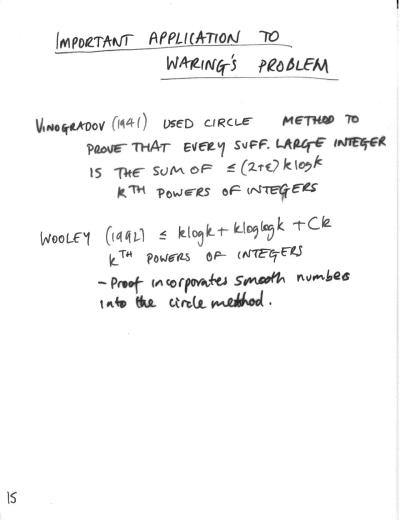 IMPORTANT APPLICATION TO
WARING'S PROBLEM
VINOGRADOV (1941) USED CIRCLE METHOD TO
PROVE THAT EVERY SUFF. LARGE INTEGER
IS THE SUM OF ≤ (2+ε) k log k
kTH POWERS OF INTEGERS
WOOLEY (1992) ≤ k log k + k log log k + Ck
kTH POWERS OF INTEGERS
- Proof incorporates smooth numbers
into the circle method.
15